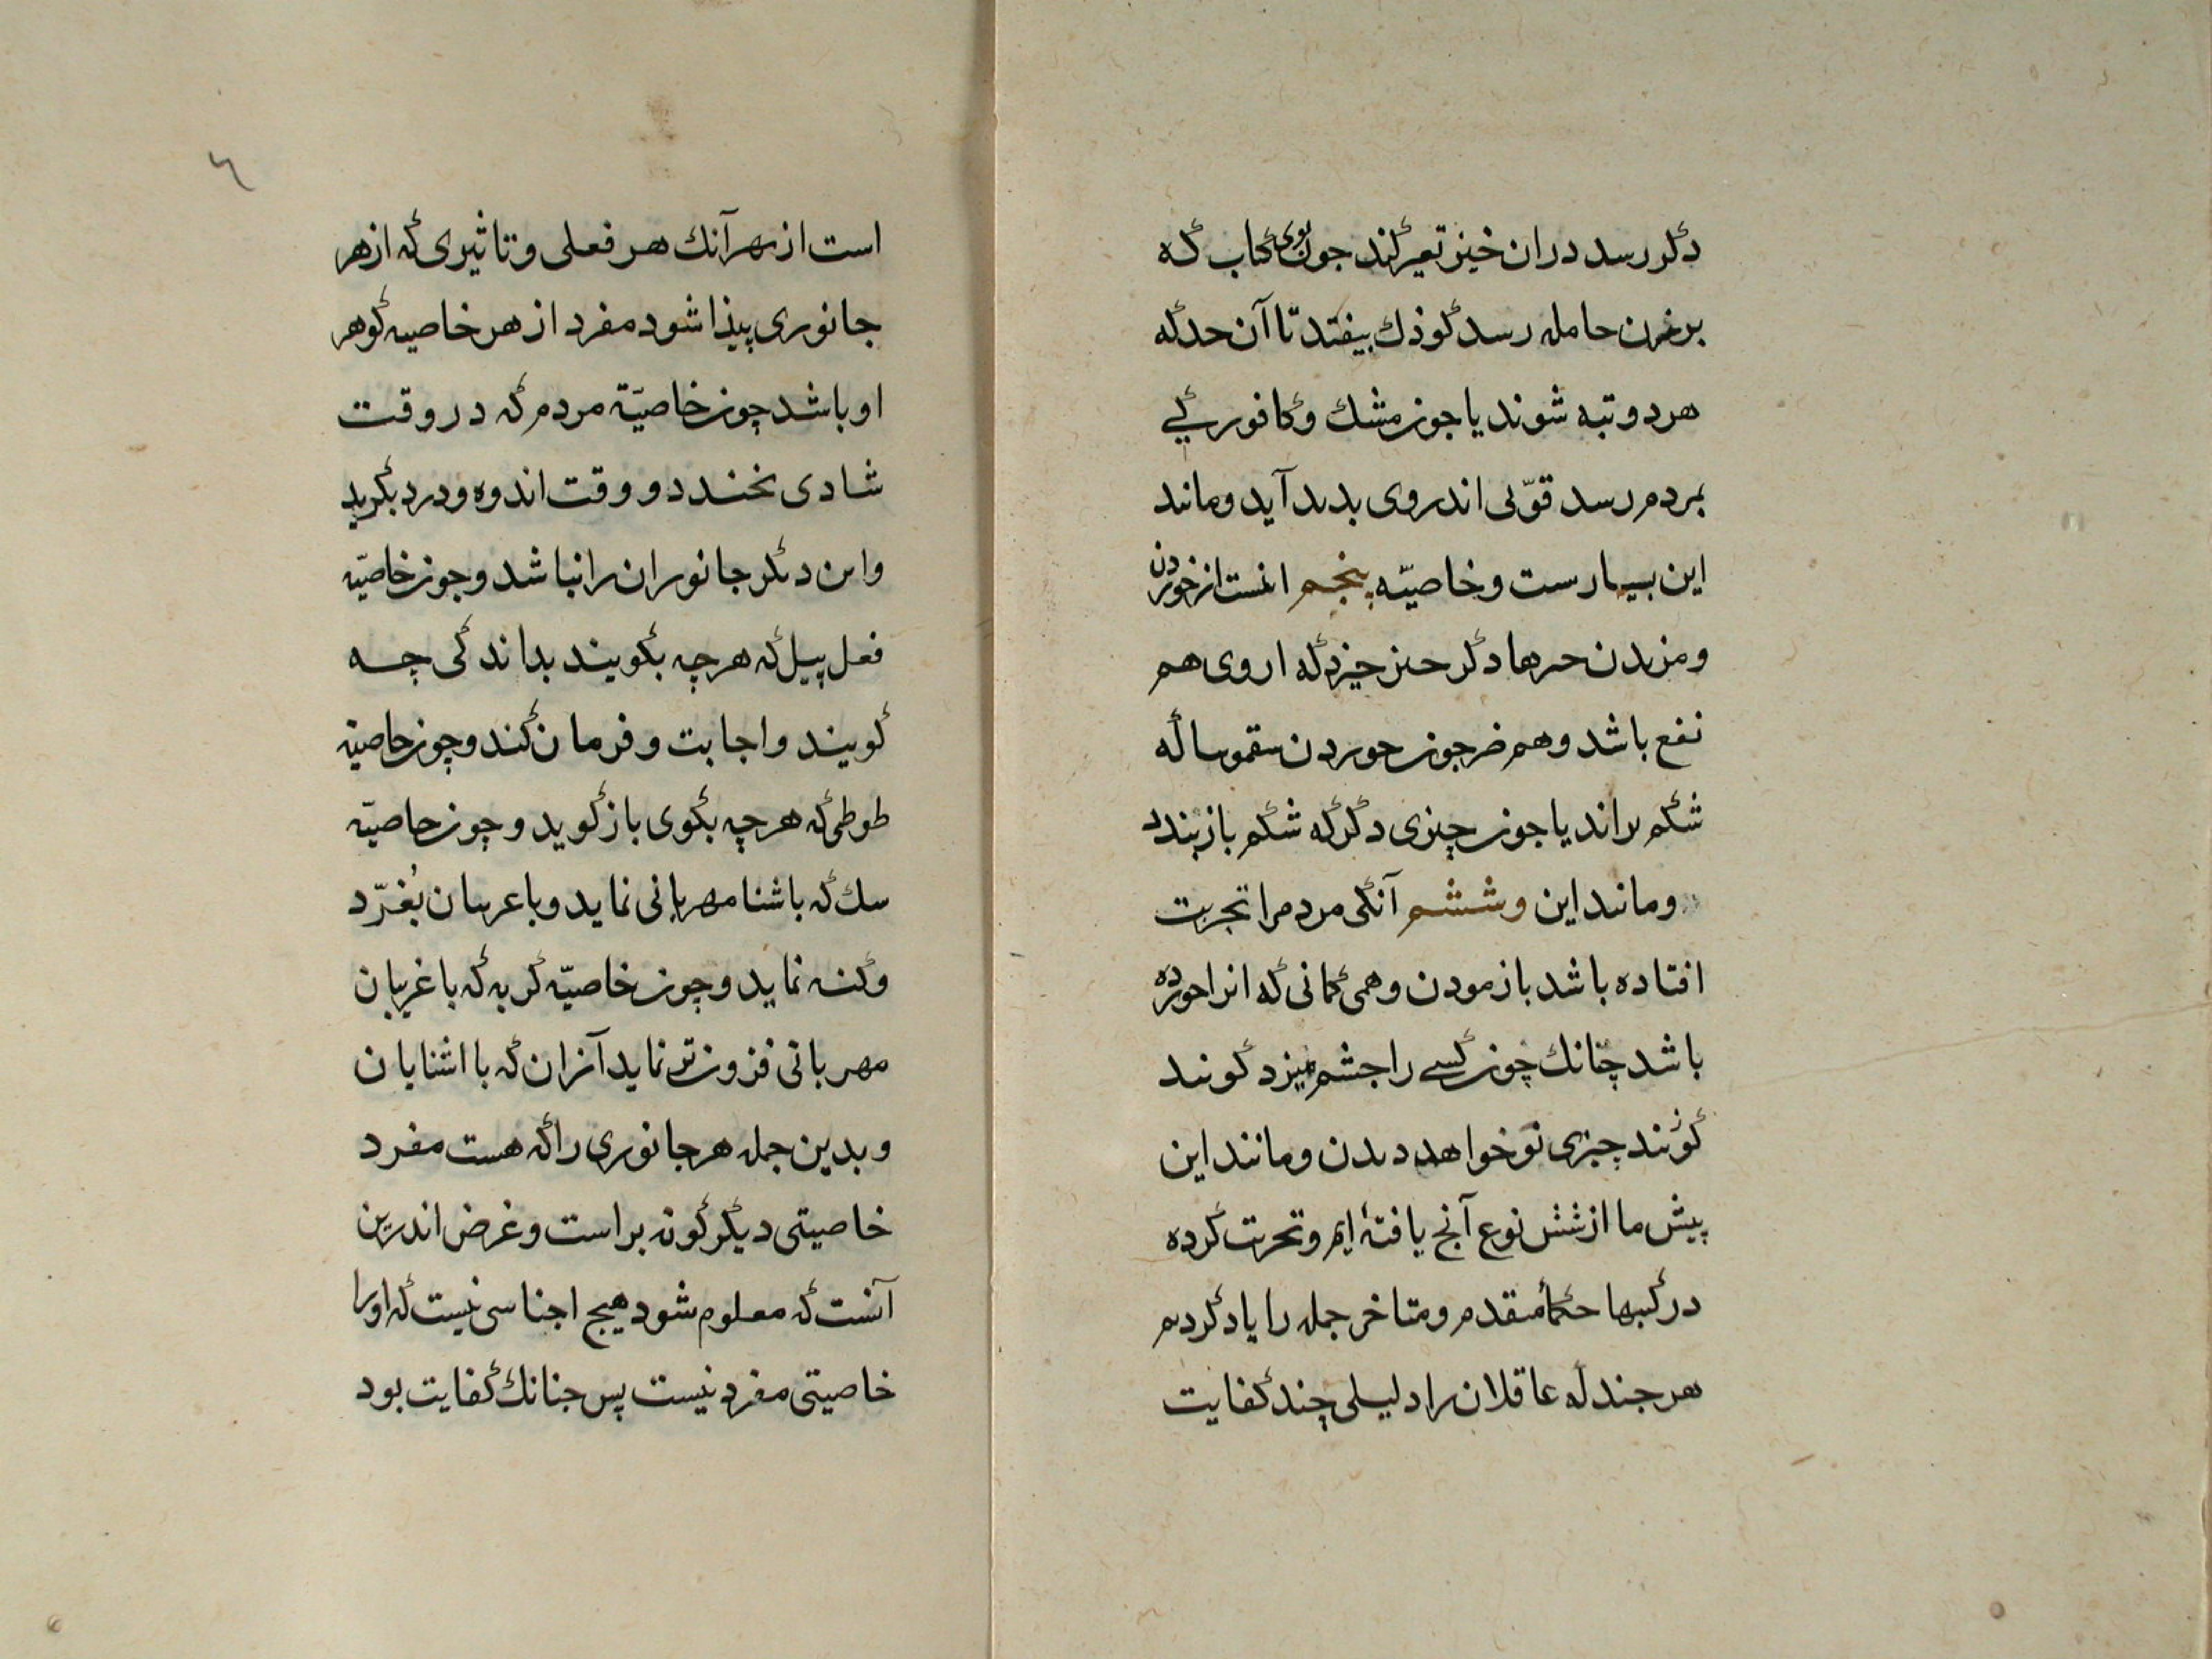 دکر رسد دران خیز تغیر کند جون بوی کباب که
بر زن حامله رسد کوذك بیفتد تا آن حد که
هر دو تبه شوند یا جون مشك و کافور کی
بمردم رسد قوّتی اندر وی بدید آید و مانند
این بسیارست و خاصیّه پنجم انست از خوردن
و مزیدن حیزها دکر حیز خیزد که از وی هم
نفع باشد و هم ضر جون خوردن سقمونیا که
شکم براند یا جون چیزی دکر که شکم باز بندد
و مانند این و ششم آنکی مردم را تجربت
افتاده باشد بازمودن و همی کمانی که انرا خورده
باشد چنانك چون کسی را جشم بیزد کویند
کوئند چیزی نو خواهد دیدن و مانند این
پیش ما از شش نوع آنج یافته ایم و تجربت کرده
در کتبها حکماء متقدم و متاخر جمله را یاد کردیم
هر جند که عاقلان را دلیلی چند کفایت
٦
است از بهر آنك هر فعلی و تاثیری که از هر
جانوری پیذا شود مفرد از هر خاصیه کوهر
او باشد چون خاصیّة مردم که در وقت
شادی بخندد و وقت اندوه و درد بکرید
و این دیکر جانوران را نباشد و جون خاصیّه
فعل پیل که هر چه بکویند بداند کی چه
کویند و اجابت و فرمان کند و چون خاصیّه
طوطی که هر چه بکوی باز کوید و چون خاصیّه
سك که باشنا مهربانی نماید و با غریبان بُغرّد
و کینه نماید و چون خاصیّه کربه که با غریبان
مهربانی فزون تر نماید از آن که با اشنایان
و بدین جمله هر جانوری را که هست مفرد
خاصیتی دیکر کونه براست و غرض اندرین
آنست که معلوم شود هیج اجناسی نیست که او را
خاصیتی مفرد نیست پس جنانك کفایت بود